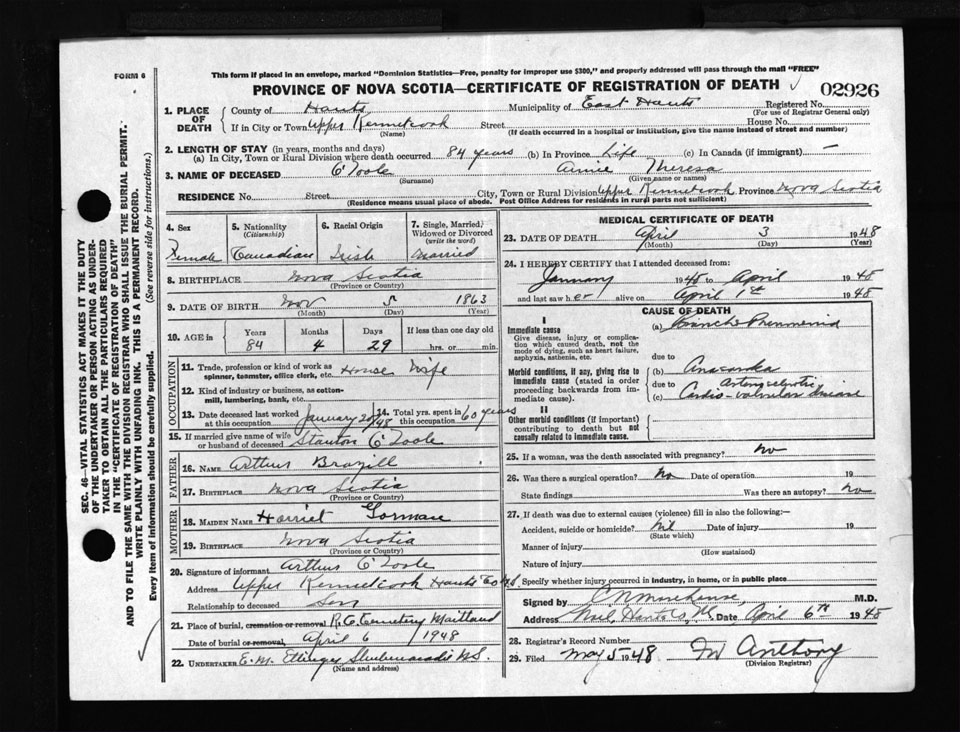 FORM 6
This form if placed in an envelope, marked "Dominion Statistics—Free, penalty for improper use $300," and properly addressed will pass through the mail "FREE"
PROVINCE OF NOVA SCOTIA—CERTIFICATE OF REGISTRATION OF DEATH
02926
1. PLACE OF DEATH
County of Hants Municipality of East Hants Registered No.
(For use of Registrar General only)
If in City or Town Upper Kennetcook Street House No.
(Name) (If death occurred in a hospital or institution, give the name instead of street and number)
2. LENGTH OF STAY (in years, months and days)
(a) In City, Town or Rural Division where death occurred 84 years (b) In Province Life (c) In Canada (if immigrant) —
3. NAME OF DECEASED O'Toole Annie Theresa
(Surname) (Given name or names)
RESIDENCE No. Street City, Town or Rural Division Upper Kennetcook Province Nova Scotia
(Residence means usual place of abode. Post Office Address for residents in rural parts not sufficient)
4. Sex 5. Nationality (Citizenship) 6. Racial Origin 7. Single, Married, Widowed or Divorced (write the word)
Female Canadian Irish Married
8. BIRTHPLACE Nova Scotia
(Province or Country)
9. DATE OF BIRTH Nov 5 1863
(Month) (Day) (Year)
10. AGE in Years Months Days If less than one day old
84 4 29 hrs. or min.
OCCUPATION
11. Trade, profession or kind of work as spinner, teamster, office clerk, etc. House Wife
12. Kind of industry or business, as cotton-mill, lumbering, bank, etc.
13. Date deceased last worked at this occupation January 20/48 14. Total yrs. spent in this occupation 60 years
15. If married give name of wife or husband of deceased Stanton O'Toole
FATHER
16. NAME Arthur Brazill
17. BIRTHPLACE Nova Scotia
(Province or Country)
MOTHER
18. MAIDEN NAME Harriet Gorman
19. BIRTHPLACE Nova Scotia
(Province or Country)
20. Signature of informant Arthur O'Toole
Address Upper Kennetcook Hants Co N.S.
Relationship to deceased Son
21. Place of burial, cremation or removal R.C. Cemetery Maitland
Date of burial or removal, April 6 1948
22. UNDERTAKER E.M. Ettinger Shubenacadie N.S.
(Name and address)
MEDICAL CERTIFICATE OF DEATH
23. DATE OF DEATH April 3 1948
(Month) (Day) (Year)
24. I HEREBY CERTIFY that I attended deceased from:
January 1948 to April 1948
and last saw her alive on April 1st 1948
CAUSE OF DEATH
I
Immediate cause
Give disease, injury or complication which caused death, not the mode of dying, such as heart failure, asphyxia, asthenia, etc.
(a) Broncho Pneumonia
due to
Morbid conditions, if any, giving rise to immediate cause (stated in order proceeding backwards from immediate cause).
(b) Anasarka
due to
(c) Arteriosclerotic Cardio-valvular disease
II
Other morbid conditions (if important) contributing to death but not causally related to immediate cause.
25. If a woman, was the death associated with pregnancy? No
26. Was there a surgical operation? No Date of operation 19
State findings Was there an autopsy? No
27. If death was due to external causes (violence) fill in also the following:—
Accident, suicide or homicide? Nil Date of injury 19
(State which)
Manner of injury
(How sustained)
Nature of injury
Specify whether injury occurred in industry, in home, or in public place
Signed by M.D.
Address Date April 6th 1948
28. Registrar's Record Number
29. Filed May 5 1948 Anthony
(Division Registrar)
SEC. 46—VITAL STATISTICS ACT MAKES IT THE DUTY
OF THE UNDERTAKER OR PERSON ACTING AS UNDER-
TAKER TO OBTAIN ALL THE PARTICULARS REQUIRED
IN THE "CERTIFICATE OF REGISTRATION OF DEATH"
AND TO FILE THE SAME WITH THE DIVISION REGISTRAR WHO SHALL ISSUE THE BURIAL PERMIT.
WRITE PLAINLY WITH UNFADING INK. THIS IS A PERMANENT RECORD.
Every item of information should be carefully supplied. (See reverse side for instructions.)